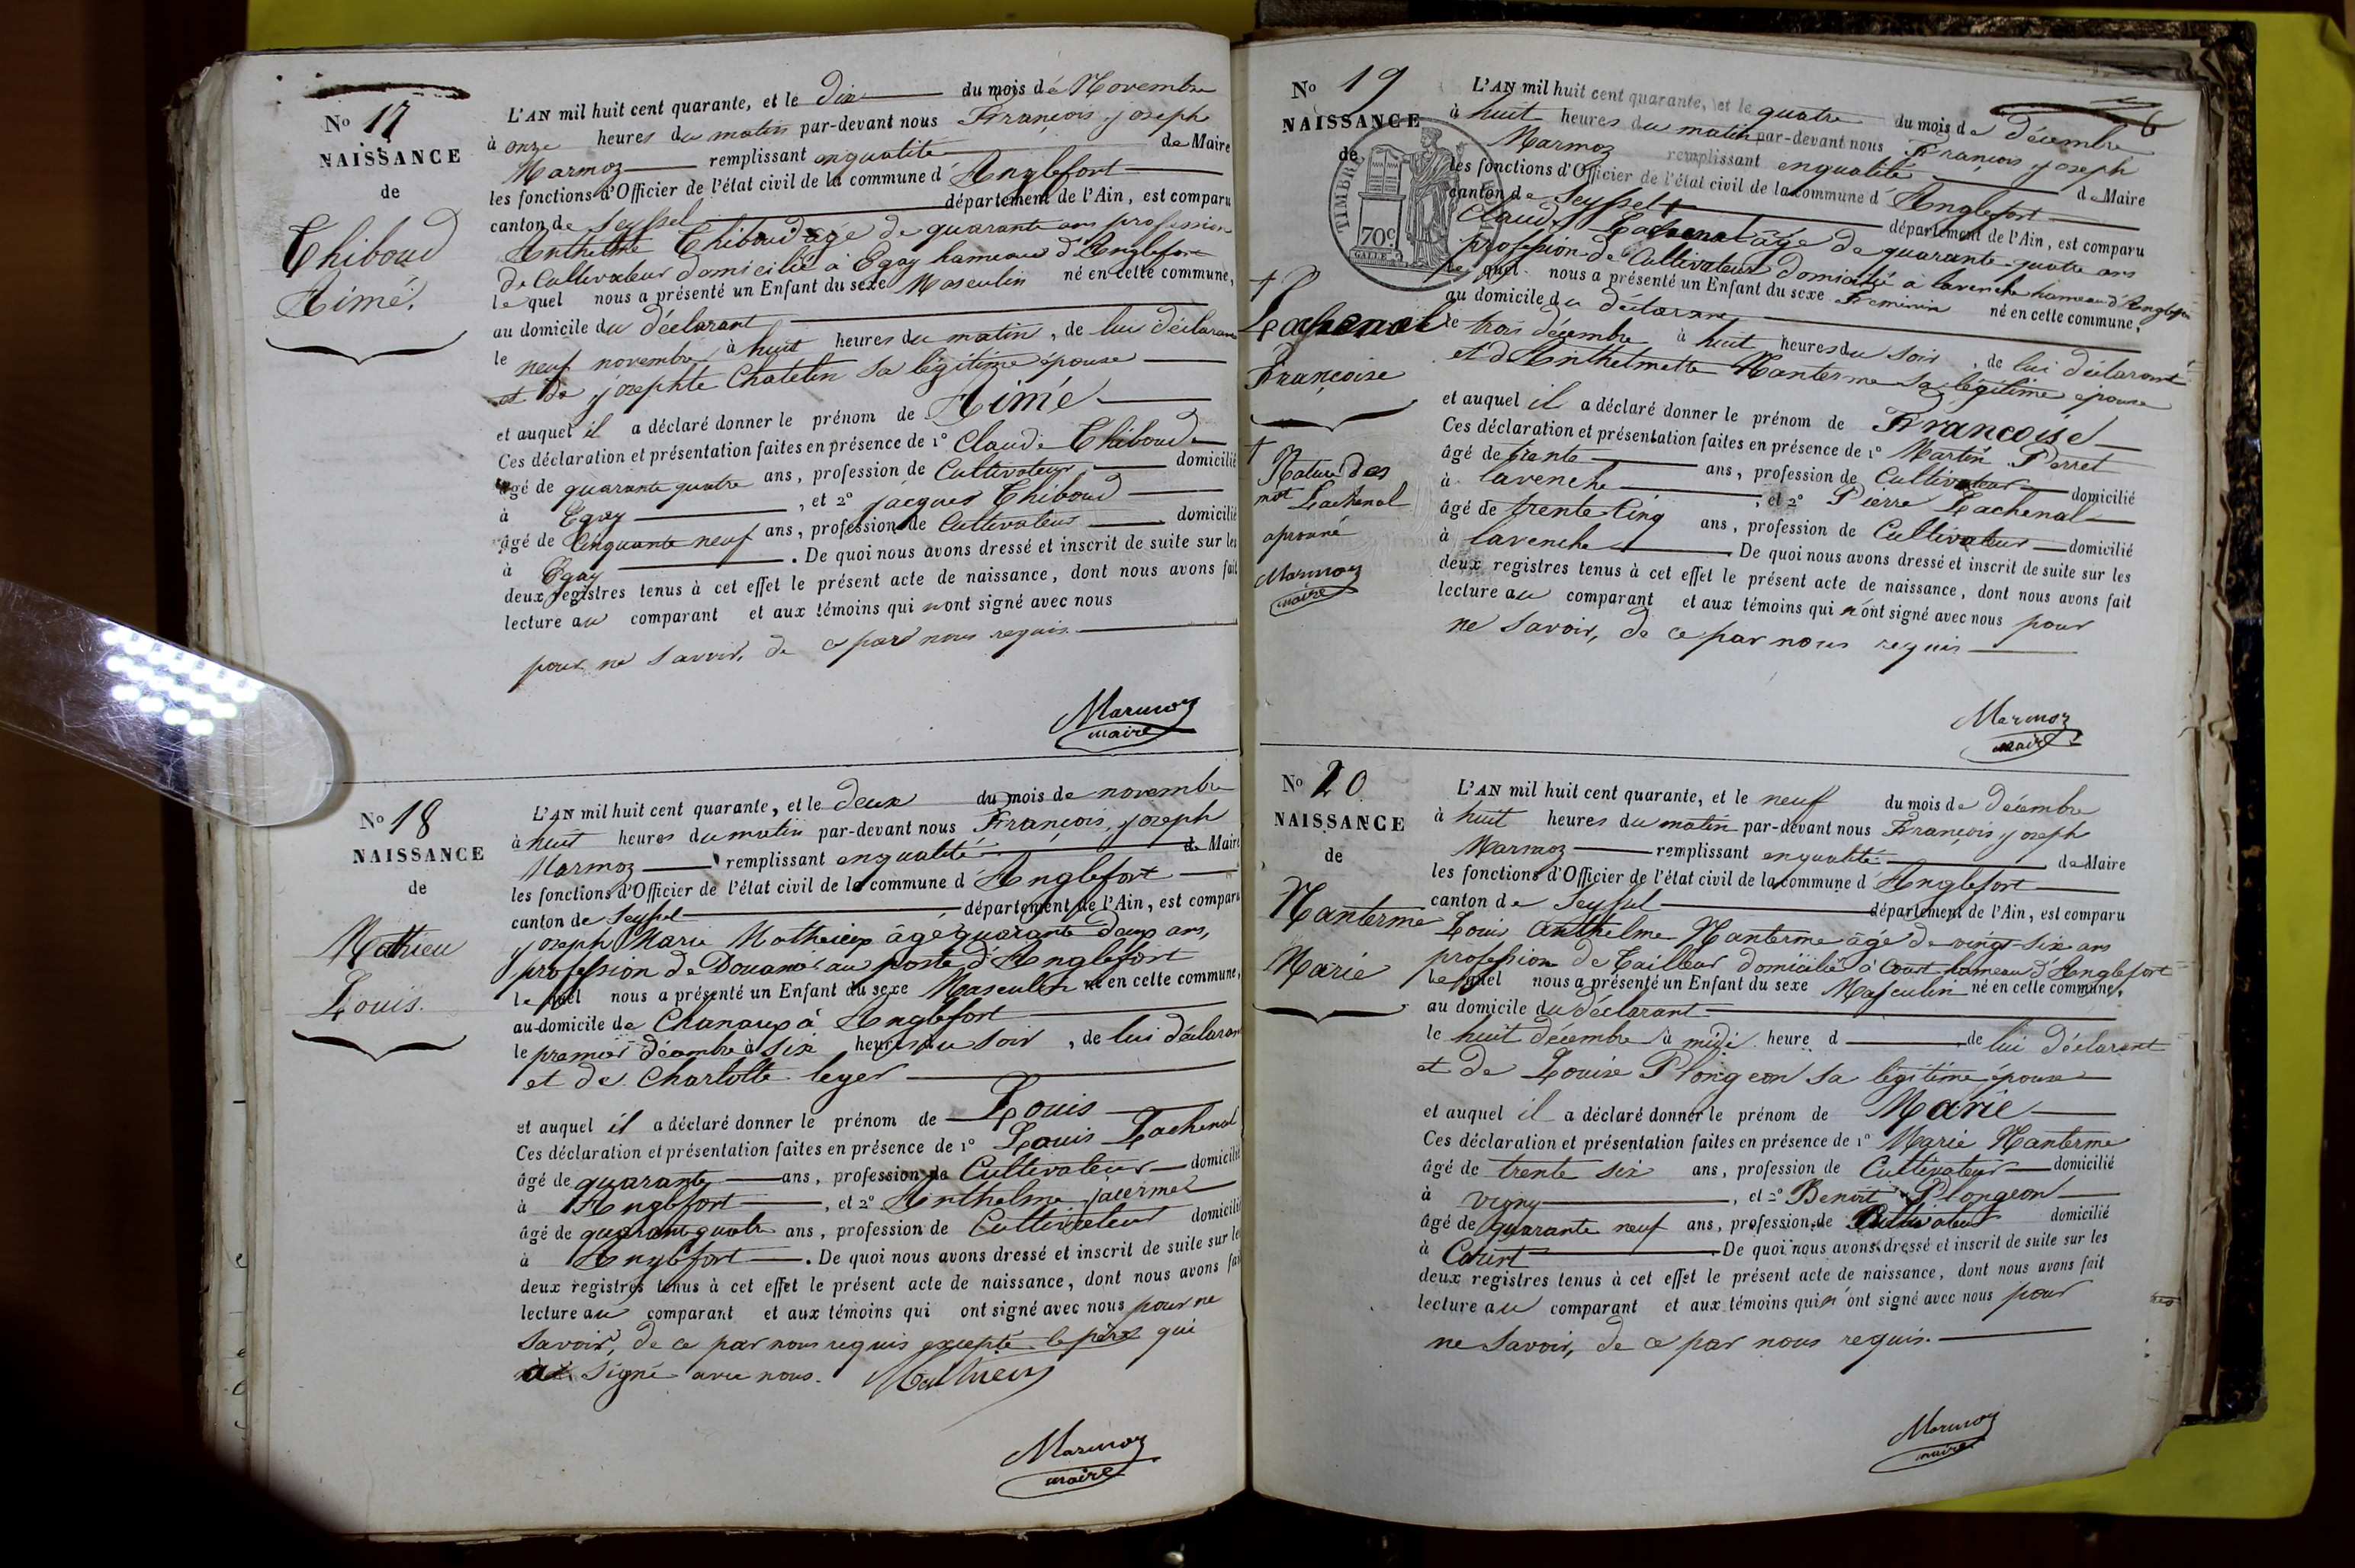 No 17
NAISSANCE
de
Thiboud
Aimé.
L'AN mil huit cent quarante, et le dix du mois de Novembre
à onze heures du matin par-devant nous François joseph
Marmoz remplissant enqualité de Maire
les fonctions d'Officier de l'état civil de la commune d'Anglefort
canton de Seyssel département de l'Ain, est comparu
Anthelme Thiboud âgé de quarante ans profession
de Cultivateur domicilié à Egay hameau d'Anglefort
lequel nous a présenté un Enfant du sexe Masculin né en cette commune,
au domicile du déclarant
le neuf novembre à huit heures du matin, de lui déclarant
et de josephte Chatelin sa légitime épouse
et auquel il a déclaré donner le prénom de Aimé
Ces déclaration et présentation faites en présence de 1º Claude Thiboud
âgé de quarante quatre ans, profession de Cultivateur domicilié
à Egay, et 2º jacques Thiboud
âgé de Cinquante neuf ans, profession de Cultivateur domicilié
à Egay. De quoi nous avons dressé et inscrit de suite sur les
deux registres tenus à cet effet le présent acte de naissance, dont nous avons fait
lecture au comparant et aux témoins qui n'ont signé avec nous
pour ne savoir, de ce par nous requis.
Marmoz
maire
No 18
NAISSANCE
de
Mathieu
Louis.
L'AN mil huit cent quarante, et le deux du mois de novembre
à huit heures du matin par-devant nous François joseph
Marmoz remplissant enqualité de Maire
les fonctions d'Officier de l'état civil de la commune d'Anglefort
canton de Seyssel département de l'Ain, est comparu
joseph Marie Mathieux âgé quarante deux ans,
profession de Douanier au poste d'Anglefort
lequel nous a présenté un Enfant du sexe Masculin né en cette commune,
au domicile de Chanaux à Anglefort
le premier décembre à six heures du soir, de lui déclarant
et de Charlotte leger
et auquel il a déclaré donner le prénom de Louis
Ces déclaration et présentation faites en présence de 1º Louis Lachenal
âgé de quarante ans, profession de Cultivateur domicilié
à Anglefort, et 2º Anthelme jacermet
âgé de quarante quatre ans, profession de Cultivateur domicilié
à Anglefort. De quoi nous avons dressé et inscrit de suite sur les
deux registres tenus à cet effet le présent acte de naissance, dont nous avons fait
lecture au comparant et aux témoins qui ont signé avec nous pour ne
savoir, de ce par nous requis excepté le père qui
a signé avec nous. Mathieu
Marmoz
maire
No 19
NAISSANCE
de
TIMBRE
70c
+
Lachenal
Françoise
+
Rature des
mot Lachenal
aprouvé
Marmoz
maire
6
L'AN mil huit cent quarante, et le quatre du mois de décembre
à huit heures du matin par-devant nous François joseph
Marmoz remplissant enqualité de Maire
les fonctions d'Officier de l'état civil de la commune d'Anglefort
canton de Seyssel département de l'Ain, est comparu
Claude Lachenal âgé de quarante-quatre ans
profession de Cultivateur domicilié à lavenche hameau d'Anglefort
lequel nous a présenté un Enfant du sexe Féminin né en cette commune,
au domicile du déclarant
le trois décembre à huit heures du soir, de lui déclarant
et d'Anthelmette Nanterme sa légitime épouse
et auquel il a déclaré donner le prénom de Françoise
Ces déclaration et présentation faites en présence de 1º Martin Perret
âgé de trente ans, profession de Cultivateur domicilié
à lavenche, et 2º Pierre Lachenal
âgé de trente Cinq ans, profession de Cultivateur domicilié
à lavenche. De quoi nous avons dressé et inscrit de suite sur les
deux registres tenus à cet effet le présent acte de naissance, dont nous avons fait
lecture au comparant et aux témoins qui n'ont signé avec nous pour
ne savoir, de ce par nous requis
Marmoz
maire
No 20
NAISSANCE
de
Nanterme
Marie
L'AN mil huit cent quarante, et le neuf du mois de décembre
à huit heures du matin par-devant nous François joseph
Marmoz remplissant enqualité de Maire
les fonctions d'Officier de l'état civil de la commune d'Anglefort
canton de Seyssel département de l'Ain, est comparu
Louis anthelme Nanterme âgé de vingt-six ans
profession de Tailleur domicilié à Court hameau d'Anglefort
lequel nous a présenté un Enfant du sexe Masculin né en cette commune,
au domicile du déclarant
le huit décembre à midi heure d de lui déclarant
et de Louise Plongeon sa légitime épouse
et auquel il a déclaré donner le prénom de Marie
Ces déclaration et présentation faites en présence de 1º Marie Nanterme
âgé de trente six ans, profession de Cultivateur domicilié
à vigny, et 2º Benoit Plongeon
âgé de quarante neuf ans, profession de Cultivateur domicilié
à Court. De quoi nous avons dressé et inscrit de suite sur les
deux registres tenus à cet effet le présent acte de naissance, dont nous avons fait
lecture au comparant et aux témoins qui n'ont signé avec nous pour
ne savoir, de ce par nous requis.
Marmoz
maire